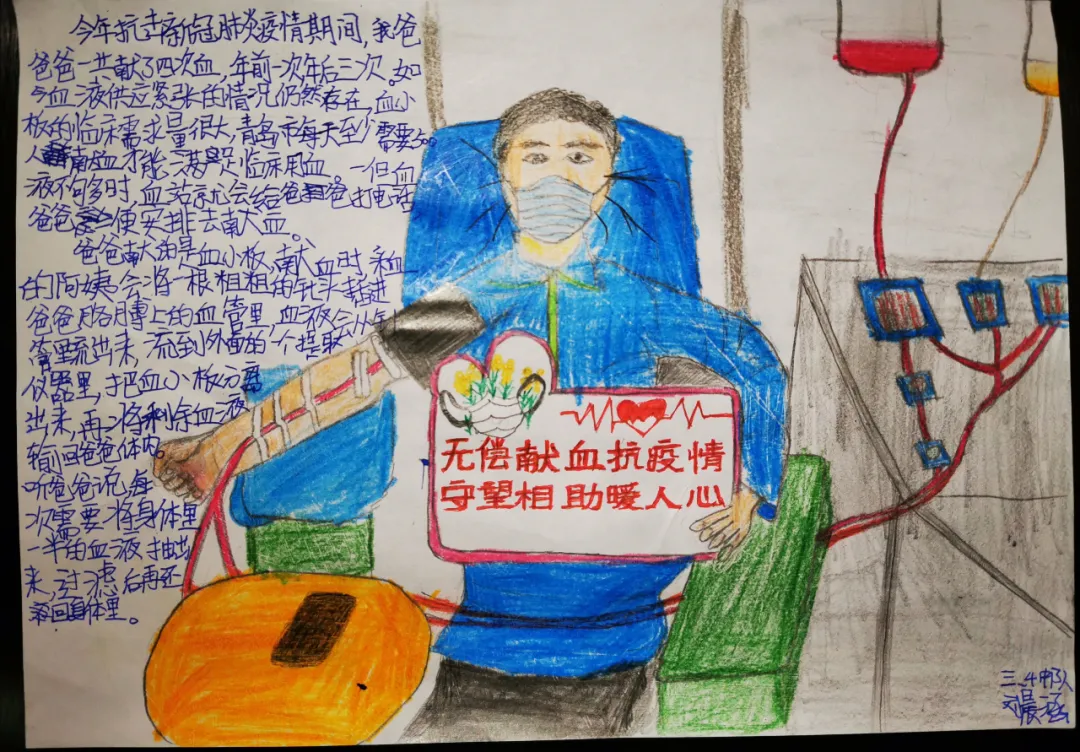 今年抗击新冠肺炎疫情期间,我爸
爸爸一共献了四次血,年前一次,年后三次。如
今血液供应紧张的情况仍然存在,血小
板的临床需求量很大,青岛市每天至少需要
人献血才能满足临床用血。一但血
液不够多时,血站就会给爸爸打电话
爸爸便安排去献血。
爸爸献的是血小板,献血时采血
的阿姨会将一根粗粗的针头插进
爸爸胳膊上的血管里,血液会从
管里流出来,流到外面的一个提取
仪器里,把血小板分离
出来,再将剩余血液
输回爸爸体内。
听爸爸说,每
次需要将身体里
一半的血液抽出
来,过滤后再还
返回身体里。
无偿献血抗疫情
守望相助暖人心
三.4中队
刘晨